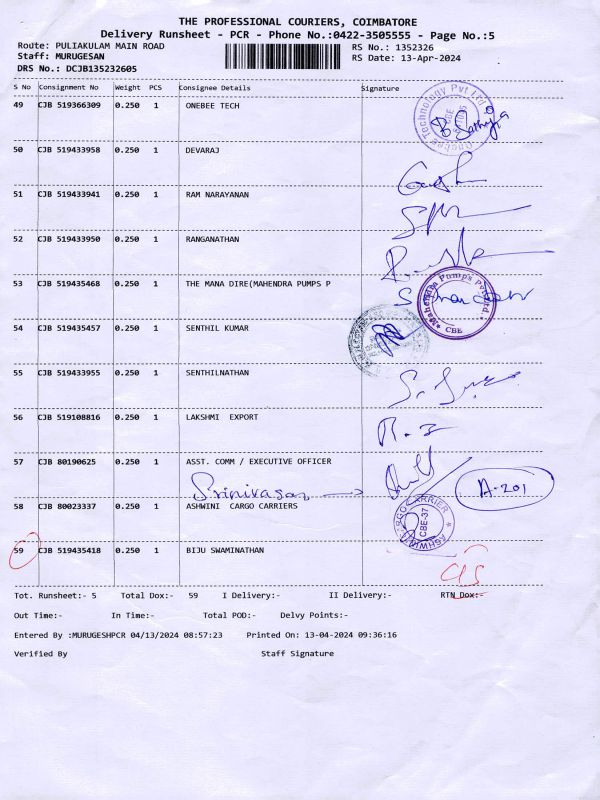 THE PROFESSIONAL COURIERS, COIMBATORE
Delivery Runsheet - PCR - Phone No.:0422-3505555 - Page No.:5
Route: PULIAKULAM MAIN ROAD RS No.: 1352326
Staff: MURUGESAN RS Date: 13-Apr-2024
DRS No.: DCJB135232605
S No Consignment No Weight PCS Consignee Details Signature
49 CJB 519366309 0.250 1 ONEBEE TECH
Onebee Technology Pvt Ltd CBE
50 CJB 519433958 0.250 1 DEVARAJ
51 CJB 519433941 0.250 1 RAM NARAYANAN
52 CJB 519433950 0.250 1 RANGANATHAN
53 CJB 519435468 0.250 1 THE MANA DIRE(MAHENDRA PUMPS P
Mahendra Pumps Pvt Ltd. CBE
54 CJB 519435457 0.250 1 SENTHIL KUMAR
55 CJB 519433955 0.250 1 SENTHILNATHAN
56 CJB 519108816 0.250 1 LAKSHMI EXPORT
57 CJB 80190625 0.250 1 ASST. COMM / EXECUTIVE OFFICER
Srinivasan A-201
58 CJB 80023337 0.250 1 ASHWINI CARGO CARRIERS
ASHWINI CARGO CARRIER CBE-37
59 CJB 519435418 0.250 1 BIJU SWAMINATHAN
Tot. Runsheet:- 5 Total Dox:- 59 I Delivery:- II Delivery:- RTN Dox:-
Out Time:- In Time:- Total POD:- Delvy Points:-
Entered By :MURUGESHPCR 04/13/2024 08:57:23 Printed On: 13-04-2024 09:36:16
Verified By Staff Signature